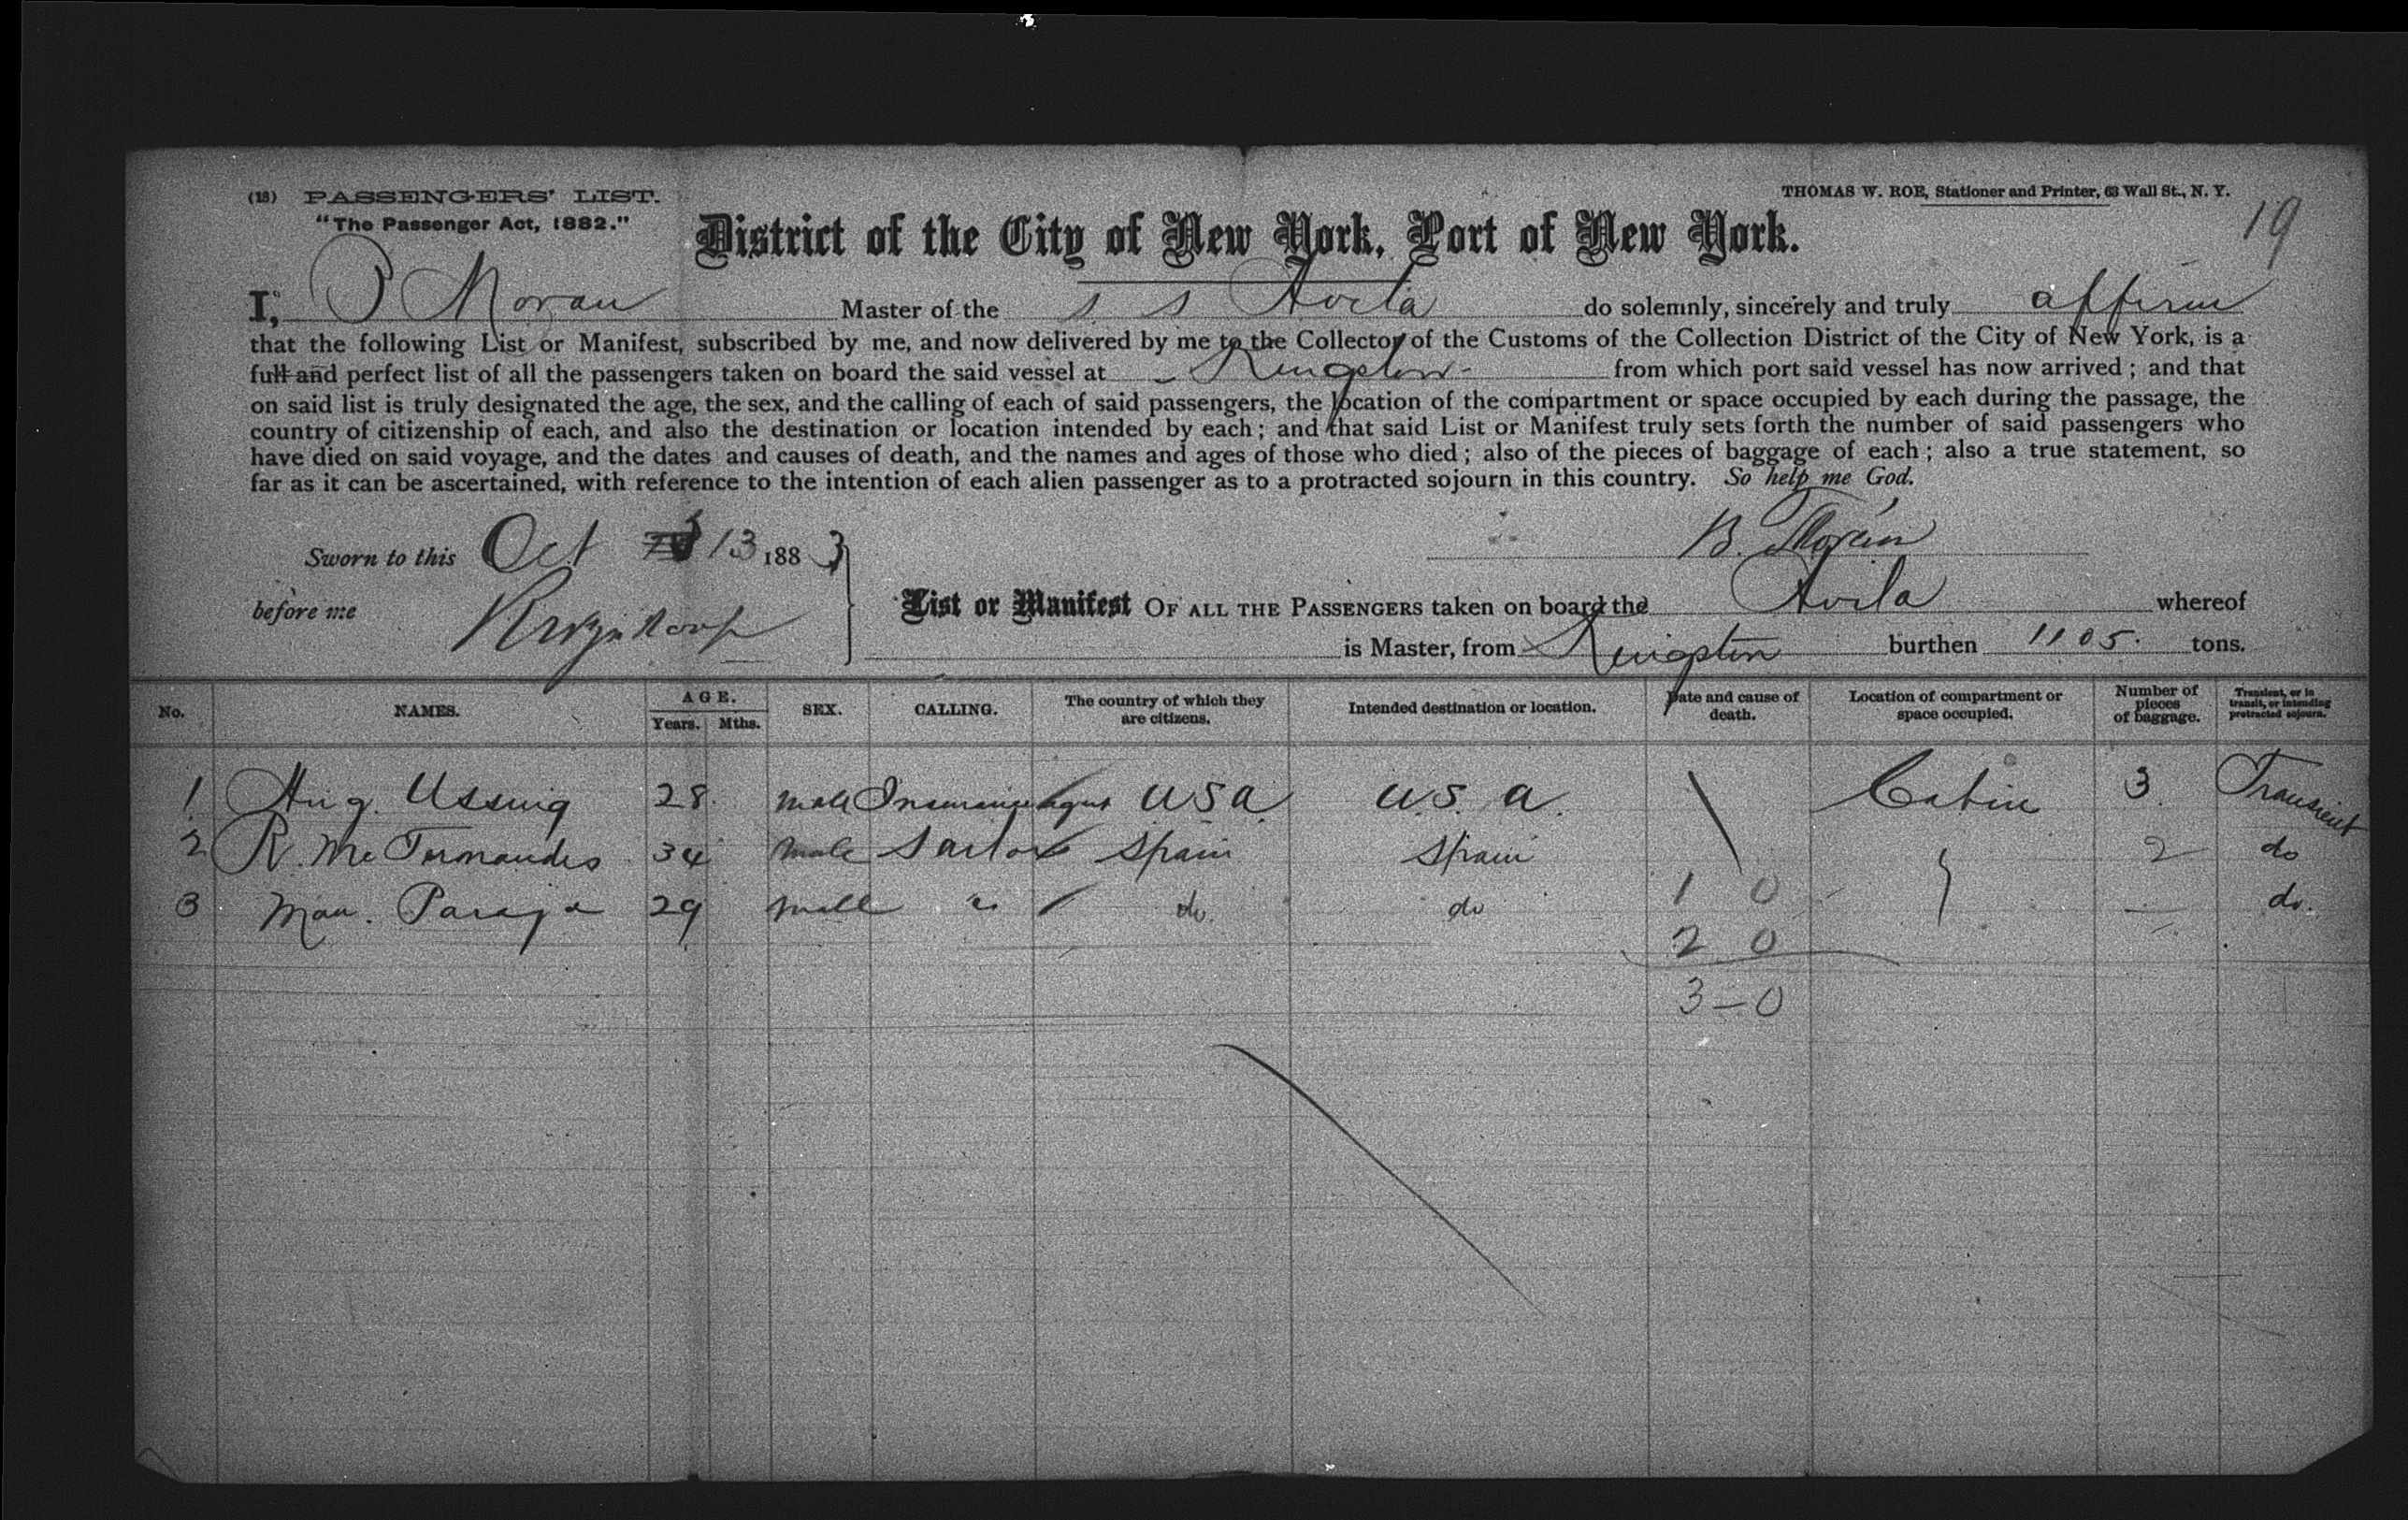 (18) PASSENGERS' LIST.
"The Passenger Act, 1882."
THOMAS W. ROE, Stationer and Printer, 63 Wall St., N. Y.
19
District of the City of New York, Port of New York.
I, P Moran Master of the S S Avila do solemnly, sincerely and truly affirm
that the following List or Manifest, subscribed by me, and now delivered by me to the Collector of the Customs of the Collection District of the City of New York, is a
full and perfect list of all the passengers taken on board the said vessel at Kingston from which port said vessel has now arrived; and that
on said list is truly designated the age, the sex, and the calling of each of said passengers, the location of the compartment or space occupied by each during the passage, the
country of citizenship of each, and also the destination or location intended by each; and that said List or Manifest truly sets forth the number of said passengers who
have died on said voyage, and the dates and causes of death, and the names and ages of those who died; also of the pieces of baggage of each; also a true statement, so
far as it can be ascertained, with reference to the intention of each alien passenger as to a protracted sojourn in this country. So help me God.
Sworn to this Oct 13 1883
B. Moran
before me
List or Manifest OF ALL THE PASSENGERS taken on board the Avila whereof
is Master, from Kingston burthen 1105. tons.
No. NAMES. AGE. Years. Mths. SEX. CALLING. The country of which they are citizens. Intended destination or location. Date and cause of death. Location of compartment or space occupied. Number of pieces of baggage. Transient, or in transit, or intending protracted sojourn.
1 Aug. Ussing 28 male Insurance agent USA U.S.A. Cabin 3 Transient
2 R. Mc Fernandes 34 male Sailor Spain Spain 2 do
3 Man. 29 male " do. do 1 0 do.
2 0
3-0